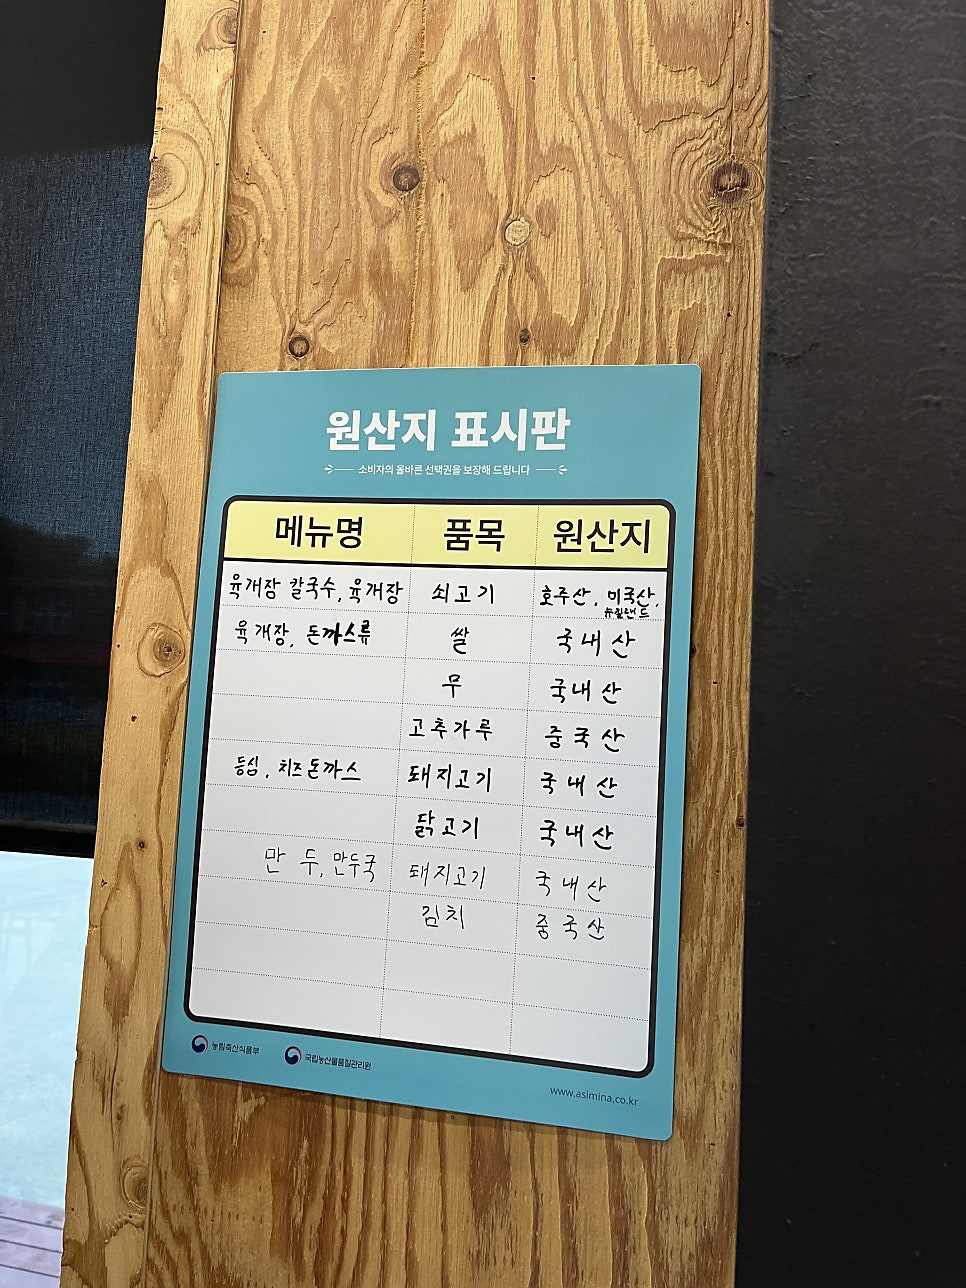 원산지 표시판
소비자의 올바른 선택권을 보장해 드립니다
메뉴명 품목 원산지
육개장 칼국수, 육개장 쇠고기 호주산, 미국산,
뉴질랜드
육개장, 돈까스류 쌀 국내산
무 국내산
고추가루 중국산
등심, 치즈돈까스 돼지고기 국내산
닭고기 국내산
만두, 만두국 돼지고기 국내산
김치 중국산
농림축산식품부 국립농산물품질관리원
www.asimina.co.kr